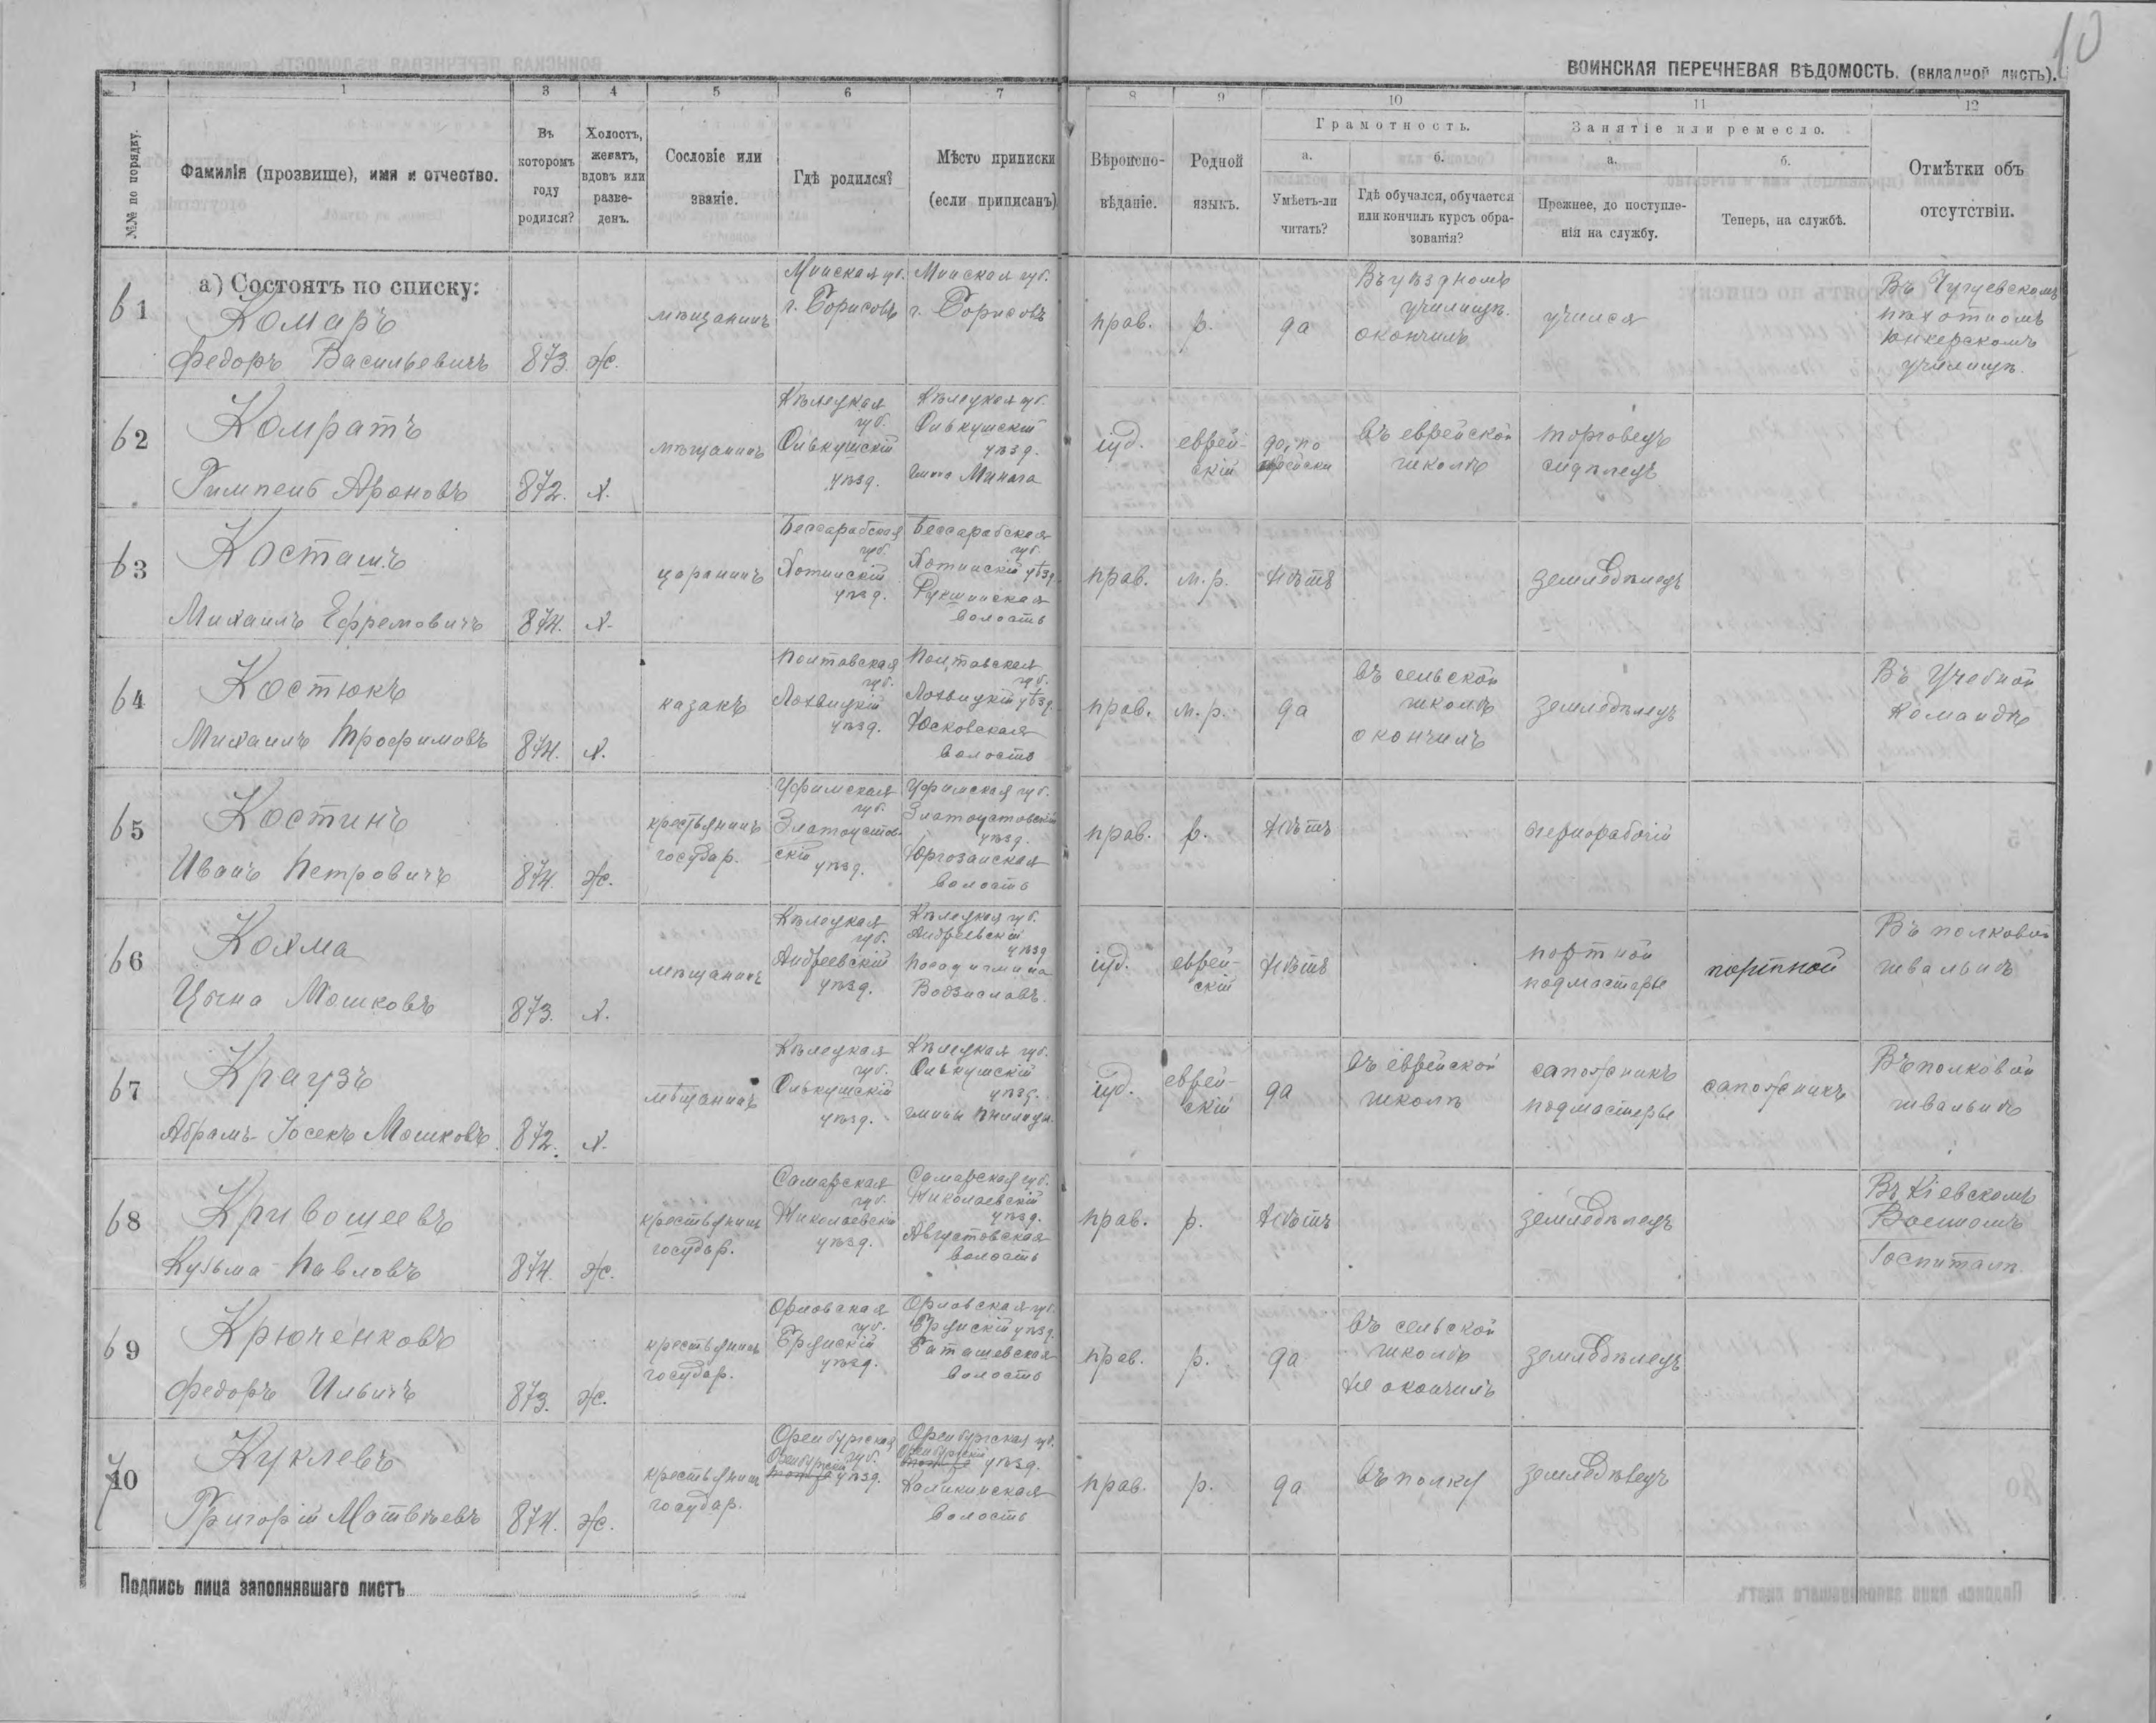 10
ВОИНСКАЯ ПЕРЕЧНЕВАЯ ВѢДОМОСТЬ. (вкладной листъ).
1 1 3 4 5 6 7 8 9 10 11 12
№№ по порядку.
Фамилія (прозвище), имя и отчество.
Въ которомъ году родился?
Холостъ, женатъ, вдовъ или разведенъ.
Сословіе или званіе.
Гдѣ родился?
Мѣсто приписки (если приписанъ)
Вѣроисповѣданіе.
Родной языкъ.
Грамотность.
а. Умѣетъ-ли читать?
б. Гдѣ обучался, обучается или кончилъ курсъ образованія?
Занятіе или ремесло.
а. Прежнее, до поступленія на службу.
б. Теперь, на службѣ.
Отмѣтки объ отсутствіи.
а) Состоятъ по списку:
61 Комаръ Федоръ Васильевичъ 873. ж. мѣщанинъ Минская губ. г. Борисовъ Минская губ. г. Борисовъ прав. р. да Въ уѣздномъ училищѣ окончилъ учился Въ Чугуевскомъ пѣхотномъ юнкерскомъ училищѣ.
62 Комратъ Гимпель Ароновъ 872. х. мѣщанинъ Кѣлецкая губ. Олькушскій уѣзд. Кѣлецкая губ. Олькушскій уѣзд. гмина Минога іуд. еврейскій да, по еврейски въ еврейской школѣ торговецъ сидѣлецъ
63 Косташъ Михаилъ Ефремовичъ 874. х. царанинъ Бессарабская губ. Хотинскій уѣзд. Бессарабская губ. Хотинскій уѣзд. Рукшинская волость прав. м. р. нѣтъ земледѣлецъ
64 Костюкъ Михаилъ Трофимовъ 874. х. казакъ Полтавская губ. Лохвицкій уѣзд. Полтавская губ. Лохвицкій уѣзд. Юсковская волость прав. м. р. да въ сельской школѣ окончилъ земледѣлецъ Въ Учебной Командѣ
65 Костинъ Иванъ Петровичъ 874. ж. крестьянинъ государ. Уфимская губ. Златоустовскій уѣзд. Уфимская губ. Златоустовскій уѣзд. Юргозанская волость прав. р. нѣтъ чернорабочій
66 Кохма Цына Мошковъ 873. х. мѣщанинъ Кѣлецкая губ. Андреевскій уѣзд. Кѣлецкая губ. Андреевскій уѣзд. посад гмина Водзиславъ. іуд. еврейскій нѣтъ портной подмастерье портной Въ полковой швальнѣ
67 Краузъ Абрамъ-Іосекъ Мошковъ 872. х. мѣщанинъ Кѣлецкая губ. Олькушскій уѣзд. Кѣлецкая губ. Олькушскій уѣзд. гмины іуд. еврейскій да въ еврейской школѣ сапожникъ подмастерье сапожникъ Въ полковой швальнѣ
68 Кривошеевъ Кузьма Павловъ 874. ж. крестьянинъ государ. Самарская губ. Николаевскій уѣзд. Самарская губ. Николаевскій уѣзд. Августовская волость прав. р. нѣтъ земледѣлецъ Въ Кіевскомъ Военномъ Госпиталѣ.
69 Крюченковъ Федоръ Ильичъ 873. ж. крестьянинъ государ. Орловская губ. Брянскій уѣзд. Орловская губ. Брянскій уѣзд. Баташевская волость прав. р. да въ сельской школѣ не окончилъ земледѣлецъ
70 Куклевъ Григорій Матвѣевъ 874. ж. крестьянинъ государ. Оренбургская губ. Оренбургскій уѣзд. Оренбургская губ. Оренбургскій уѣзд. Каликинская волость прав. р. да въ полку земледѣлецъ
Подпись лица заполнявшаго листъ